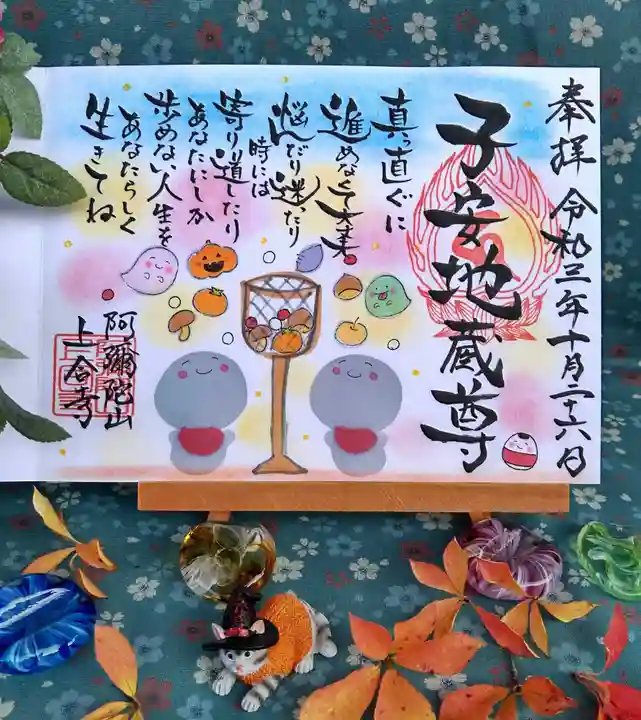 奉拝 令和三年十月二十六日
子安地蔵尊
真っ直ぐに
進めなくて大丈夫
悩んだり迷ったり
時には
寄り道したり
あなたにしか
歩めない人生を
あなたらしく
生きてね
阿彌陀山
上合寺